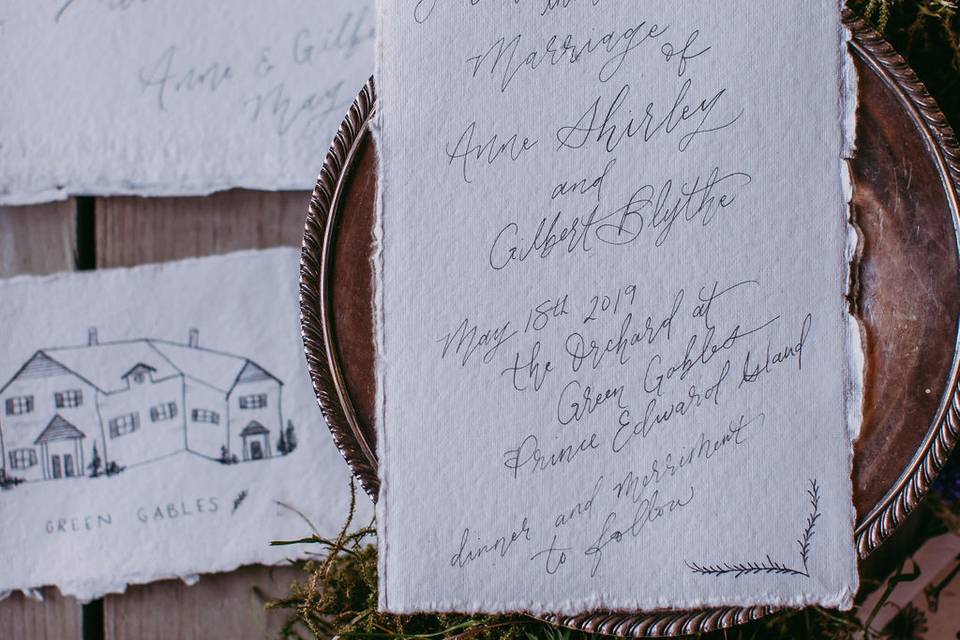 Anne & Gilbe
May
GREEN GABLES
Marriage
of
Anne Shirley
and
Gilbert Blythe
May 18th 2019
the Orchard at
Green Gables
Prince Edward Island
dinner and merriment
to follow